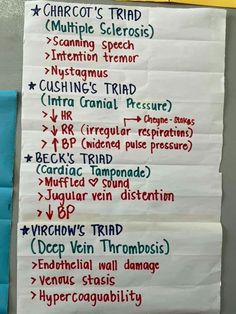 ★ CHARCOT'S TRIAD
(Multiple Sclerosis)
> Scanning speech
> Intention tremor
> Nystagmus
★ CUSHING'S TRIAD
(Intra Cranial Pressure)
> ↓ HR → Cheyne-Stokes
> ↓ RR (irregular respirations)
> ↑ BP (widened pulse pressure)
★ BECK'S TRIAD
(Cardiac Tamponade)
> Muffled ♡ sound
> Jugular vein distention
> ↓ BP
★ VIRCHOW'S TRIAD
(Deep Vein Thrombosis)
> Endothelial wall damage
> venous stasis
> Hypercoaguability